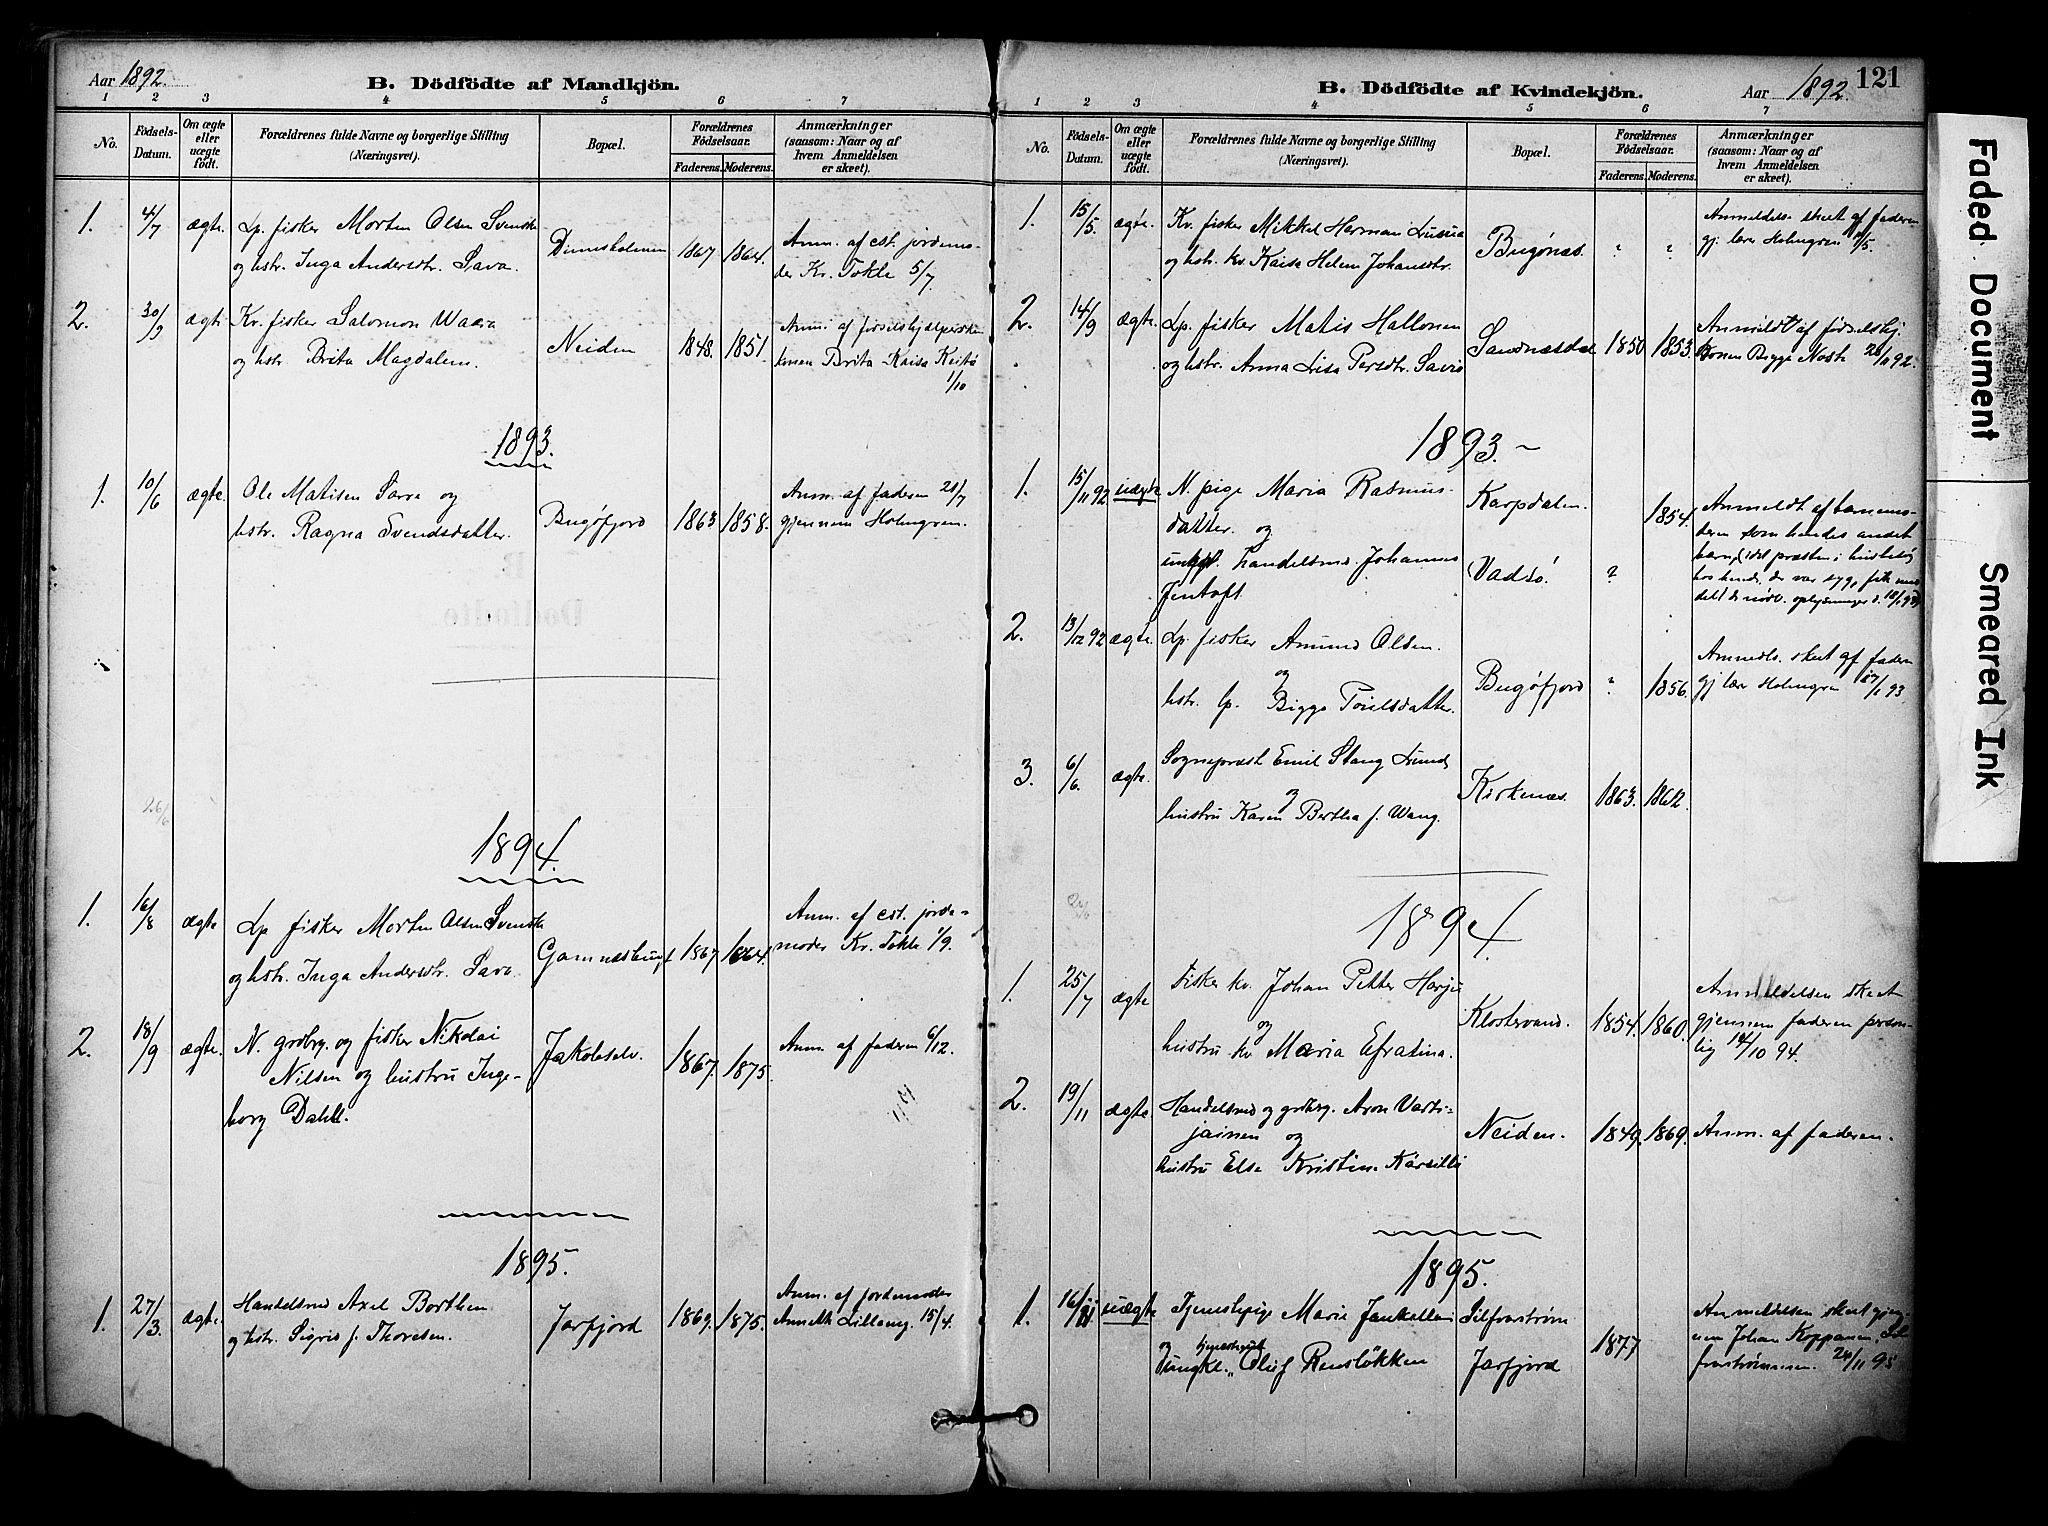 Aar 1892.
B. Dödfödte af Mandkjön.
1 2 3 4 5 6 7
No.
Födsels-Datum.
Om ægte eller uægte født.
Forældrenes fulde Navne og borgerlige Stilling
(Næringsvei).
Bopæl.
Forældrenes Födselsaar.
Faderens. Moderens.
Anmærkninger
(saasom: Naar og af
hvem Anmeldelsen
er skeet).
1. 4/7 ægte. Lp. fisker Morten Olsen Svendsk
og hstr. Inga Andersdtr. Sava.
1867 1864.
Anm. af est. jordemo-
der Kr. Tokle 5/7
2. 30/9 ægte Kv. fisker Salomon Waara
og hstr Brita Magdalena.
Neiden 1848. 1851.
Anm. af fødselshjælpersken
konen Brita Kaisa
1/10
1893.
1. 10/6 ægte. Ole Matisen Sava og
hstr. Ragna Svendsdatter.
Bugöfjord 1863 1858.
Anm. af faderen 20/7
gjennem Holmgren.
26/6
1894.
1. 16/8 ægte Lp fisker Morten Olsen Svendsk
og hstr. Inga Andersdtr. Sava.
1867 1864.
Anm. af est. jorde-
moder Kr. Tokle 1/9.
2. 18/9 ægte. N. grdbrg. og fisker Nikolai
Nilsen og hustru Inge-
borg Dahl.
Jakobselv. 1867. 1875.
Anm. af faderen 6/12.
1895.
1. 27/3. ægte. Handelsmd Axel Borthen
og hstr. Sigrid f. Thoresen.
Jarfjord 1869. 1875.
Anm. af jordemoder
Lilleng. 15/4.
B. Dödfödte af Kvindekjön.
Aar 1892.
121
1 2 3 4 5 6 7
No.
Födsels-Datum.
Om ægte eller uægte födt.
Forældrenes fulde Navne og borgerlige Stilling
(Næringsvei).
Bopæl.
Forældrenes Födselsaar.
Faderens. Moderens.
Anmærkninger
(saasom: Naar og af
hvem Anmeldelsen
er skeet).
1. 15/5. ægte. Kv. fisker Mikkel Herman
og hstr. kv. Kaisa Helena Johansdtr.
Bugönes. " "
Anmeldels. skeet af faderen
gj. lærer Holmgren
2. 14/9 ægte. Lp. fisker Matis Hallonen
og hstr. Anna Lisa Persdtr. Savio
Sandnesdal 1850 1853.
Anmeldt af fødselshj.
konen Bigga
1893.
1. 15/11 92 uægte N. pige Maria Rasmus-
datter. og
ungkl. handelsmd. Johannes
Jentoft.
Karpdalen.
Vadsö.
? 1854.
Anmeldt af barnemo-
deren som hendes andet
barn, idet præsten i husbesög
hos hende, der var syg, fik med-
delt de nödv. oplysninger
2. 13/12 92 ægte. Lp. fisker Amund Olsen.
og
hstr. lp. Bigga Poulsdatter.
Bugöfjord ? 1856.
Anmeldls. skeet af faderen
gj lærer Holmgren 17/1 93
3. 6/6. ægte. Sogneprest Emil Stang Lund
og
hustru Karen Bertha f. Wang.
Kirkenæs. 1863. 1862.
1894.
1. 25/7 ægte Fisker kv. Johan Petter Harju
og
hustru kv Maria Efratina.
Klostervand. 1854. 1860.
Anmeldelsen skeet
gjennem faderen person-
lig 14/10 94.
2. 19/11 ægte Handelsmd og grdbrg. Aron Varti-
jainen og
hustru Elsa Kristina Karsilli
Neiden. 1849. 1869.
Anm. af faderen.
1895.
1. 16/11 uægte Tjenestepige Maria Jankalla
og tjenestekarl
ungkl. Oluf Rensløkken
Silfvarström
Jarfjord
1877
Anmeldelsen skeet gjen-
nem Johan Koppanen Sil-
frarströmmen. 24/11 95
Faded Document
Smeared Ink